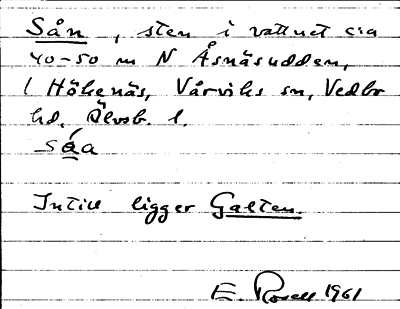 Sån, sten i vattnet c:a
40-50 m N Åsnäsudden,
l Hökenäs, Vårviks sn, Vedbo
hd. Älvsb. l.
såa
Intill ligger Galten.
E. Rosell 1961